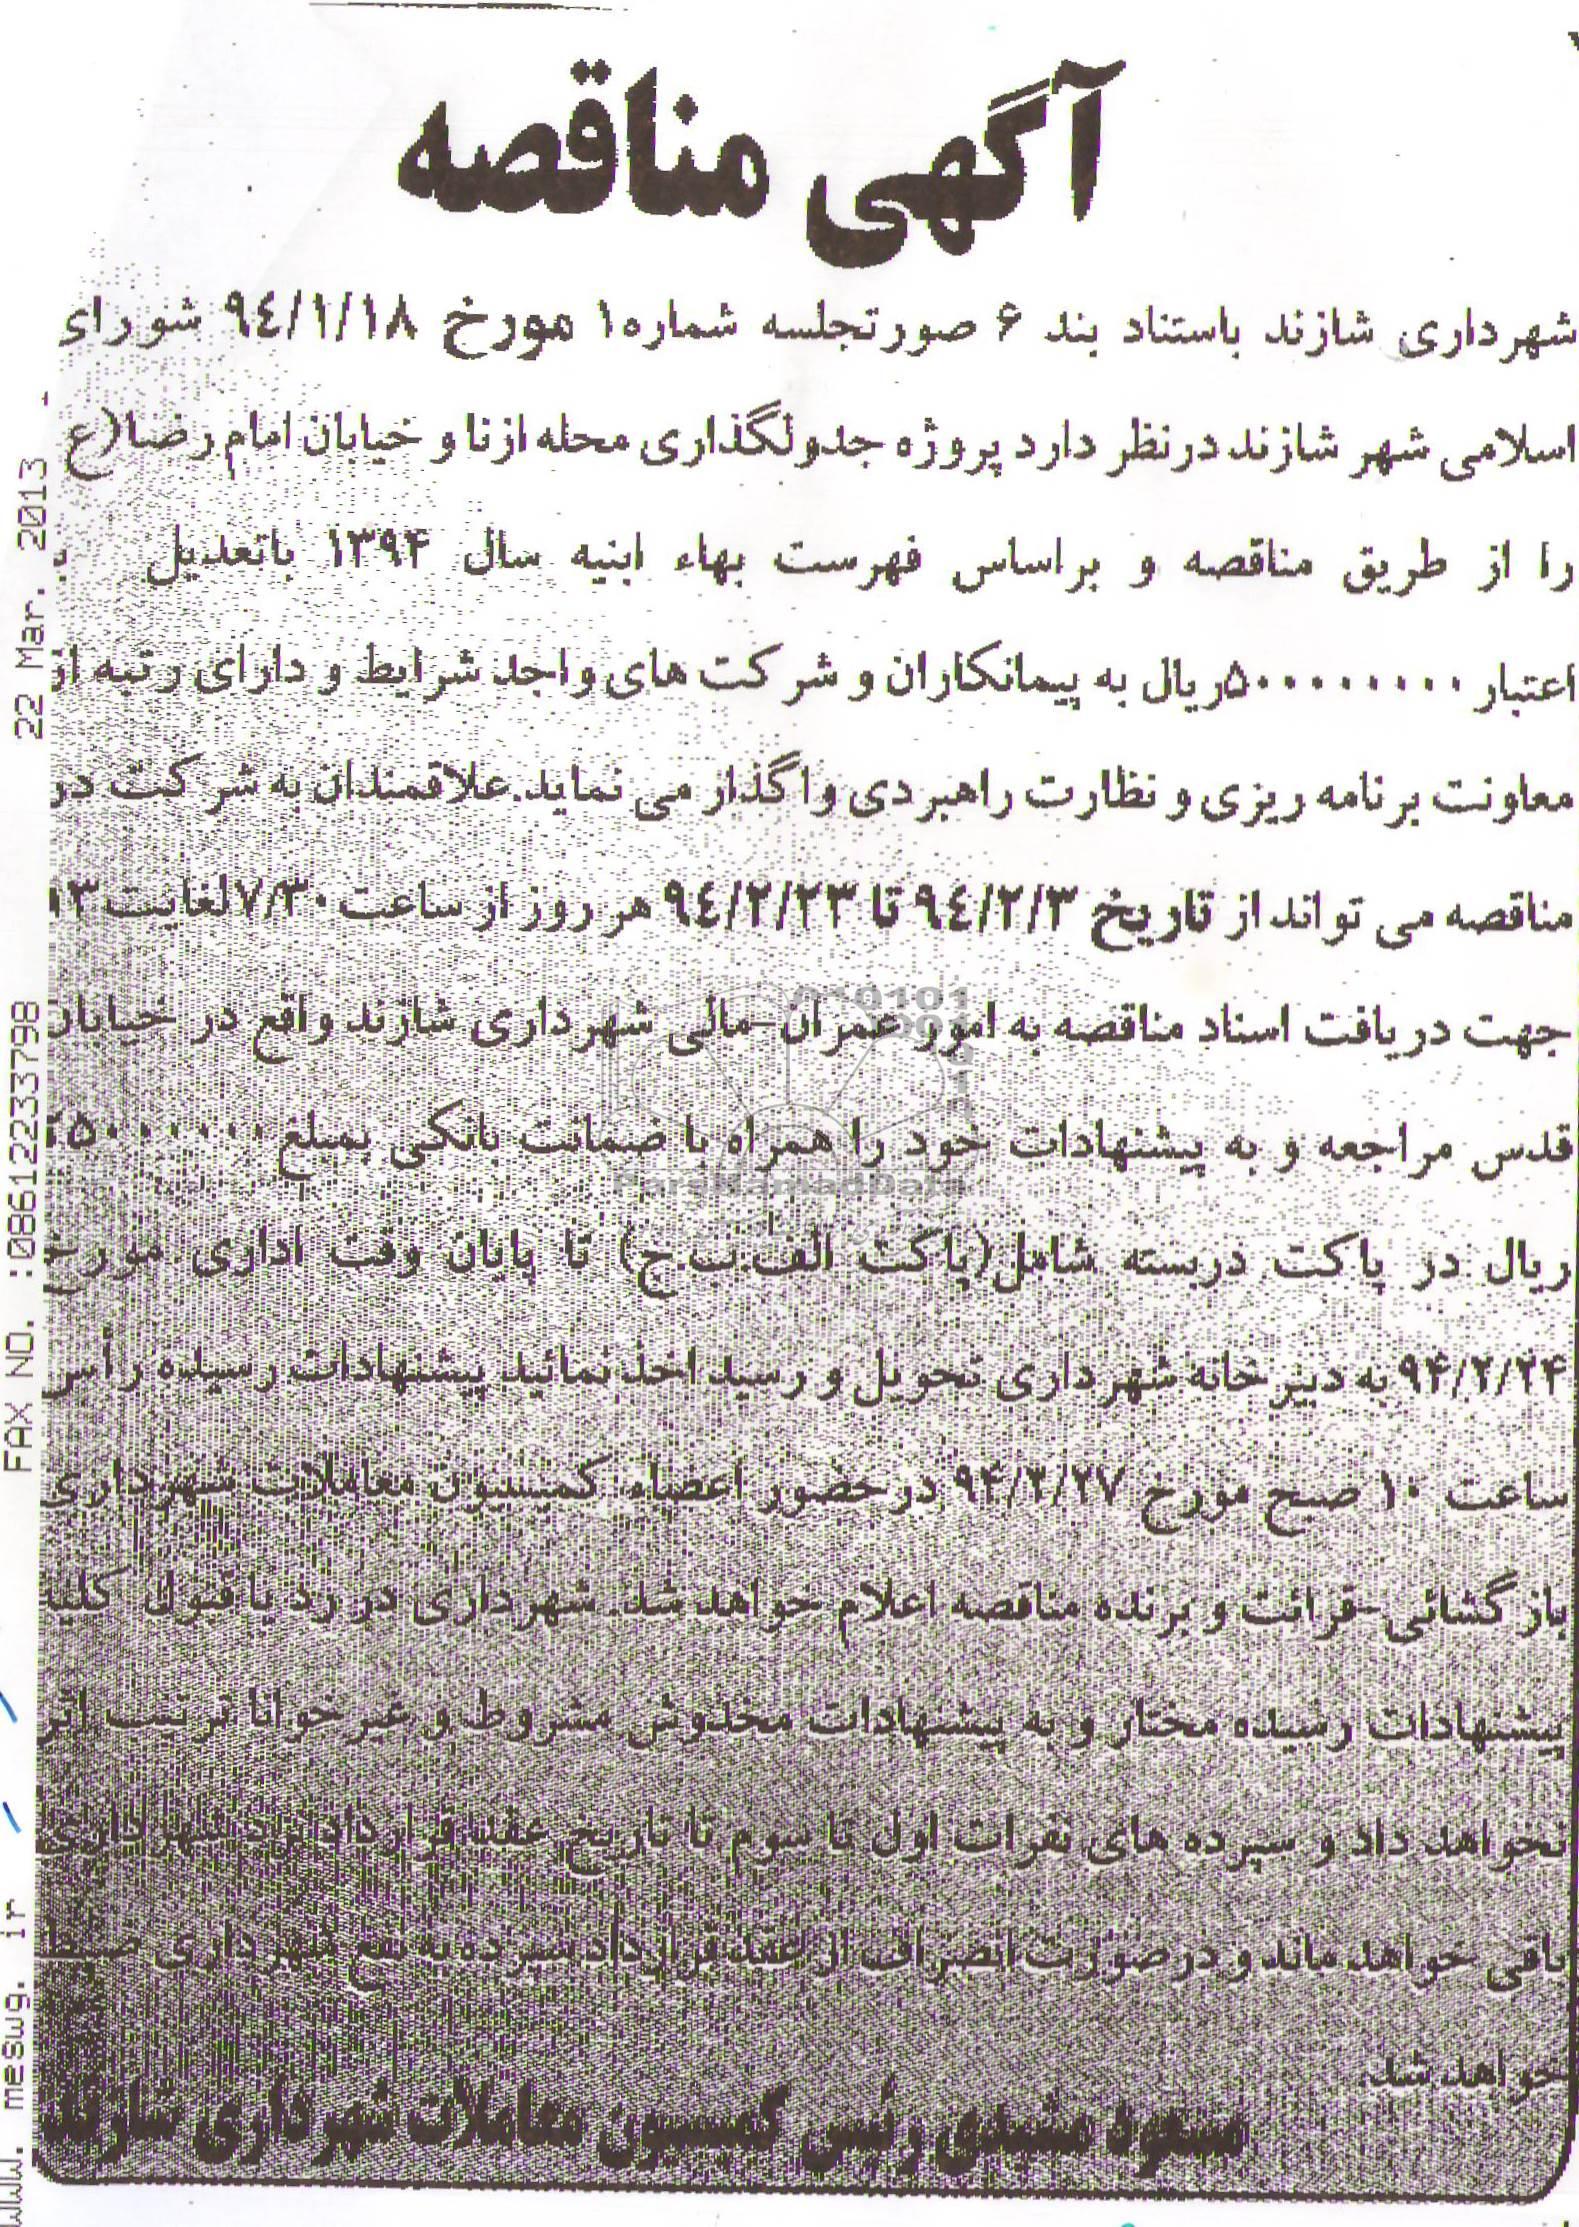 آگهی مناقصه
شهرداری شازند باستناد بند ۶ صورتجلسه شماره۱ مورخ ۹٤/۱/۱۸ شورای
اسلامی شهر شازند درنظر دارد پروژه جدولگذاری محله ازنا و خیابان امام رضا(ع
را از طریق مناقصه و براساس فهرست بهاء ابنیه سال ۱۳۹۴ باتعدیل ب
اعتبار ۵۰۰۰۰۰۰۰۰۰ریال به پیمانکاران و شرکت های واجد شرایط و دارای رتبه از
معاونت برنامه ریزی و نظارت راهبردی واگذار می نماید.علاقمندان به شرکت در
مناقصه می تواند از تاریخ ۹٤/۲/۳ تا ۹٤/۲/۲۳ هر روز از ساعت ۷/۳۰لغایت ۱۳
جهت دریافت اسناد مناقصه به امور عمران-مالی شهرداری شازند واقع در خیابان
قدس مراجعه و به پیشنهادات خود را همراه با ضمانت بانکی بمبلغ
ریال در پاکت دربسته شامل(پاکت الف.ب.ج) تا پایان وقت اداری مورخ
۹۴/۲/۲۴ به دبیرخانه شهرداری تحویل و رسید اخذ نمائید پیشنهادات رسیده رأس
ساعت ۱۰ صبح مورخ ۹۴/۲/۲۷ در حضور اعضاء کمیسیون معاملات شهرداری
بازگشائی-قرائت و برنده مناقصه اعلام خواهد شد. شهرداری در رد یا قبول کلیه
پیشنهادات رسیده مختار و به پیشنهادات مخدوش مشروط و غیر خوانا ترتیب اثر
نخواهد داد و سپرده های نفرات اول تا سوم تا تاریخ عقد قرارداد نزد شهرداری
باقی خواهد ماند و درصورت انصراف از عقد قرارداد سپرده به نفع شهرداری ضبط
خواهد شد.
رئیس کمیسیون معاملات شهرداری شازند
22 Mar. 2013
FAX NO. :08612233798
www. meswg. ir
ParsNamadData